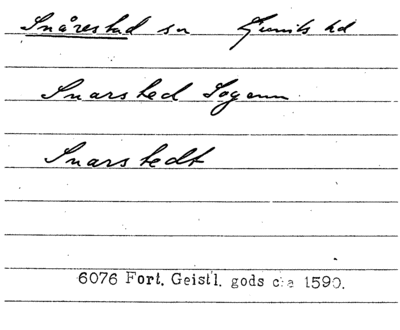 Snårestad sn Ljunits hd
Snarsted Sogenn
Snarstedt
6076 Fort. Geistl. gods c:a 1590.